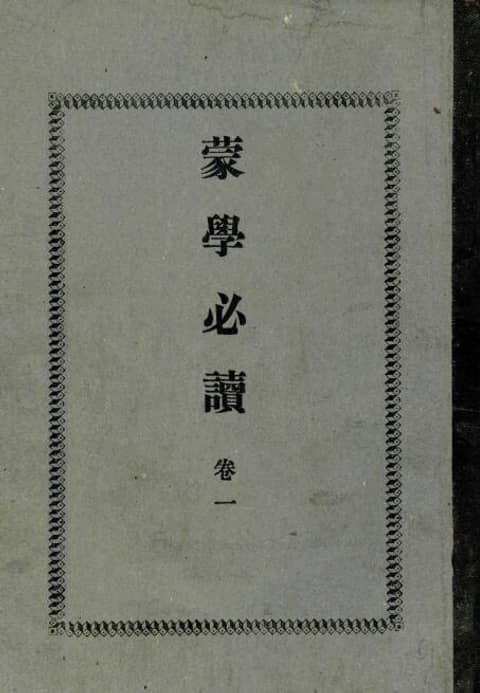 蒙學必讀
卷一